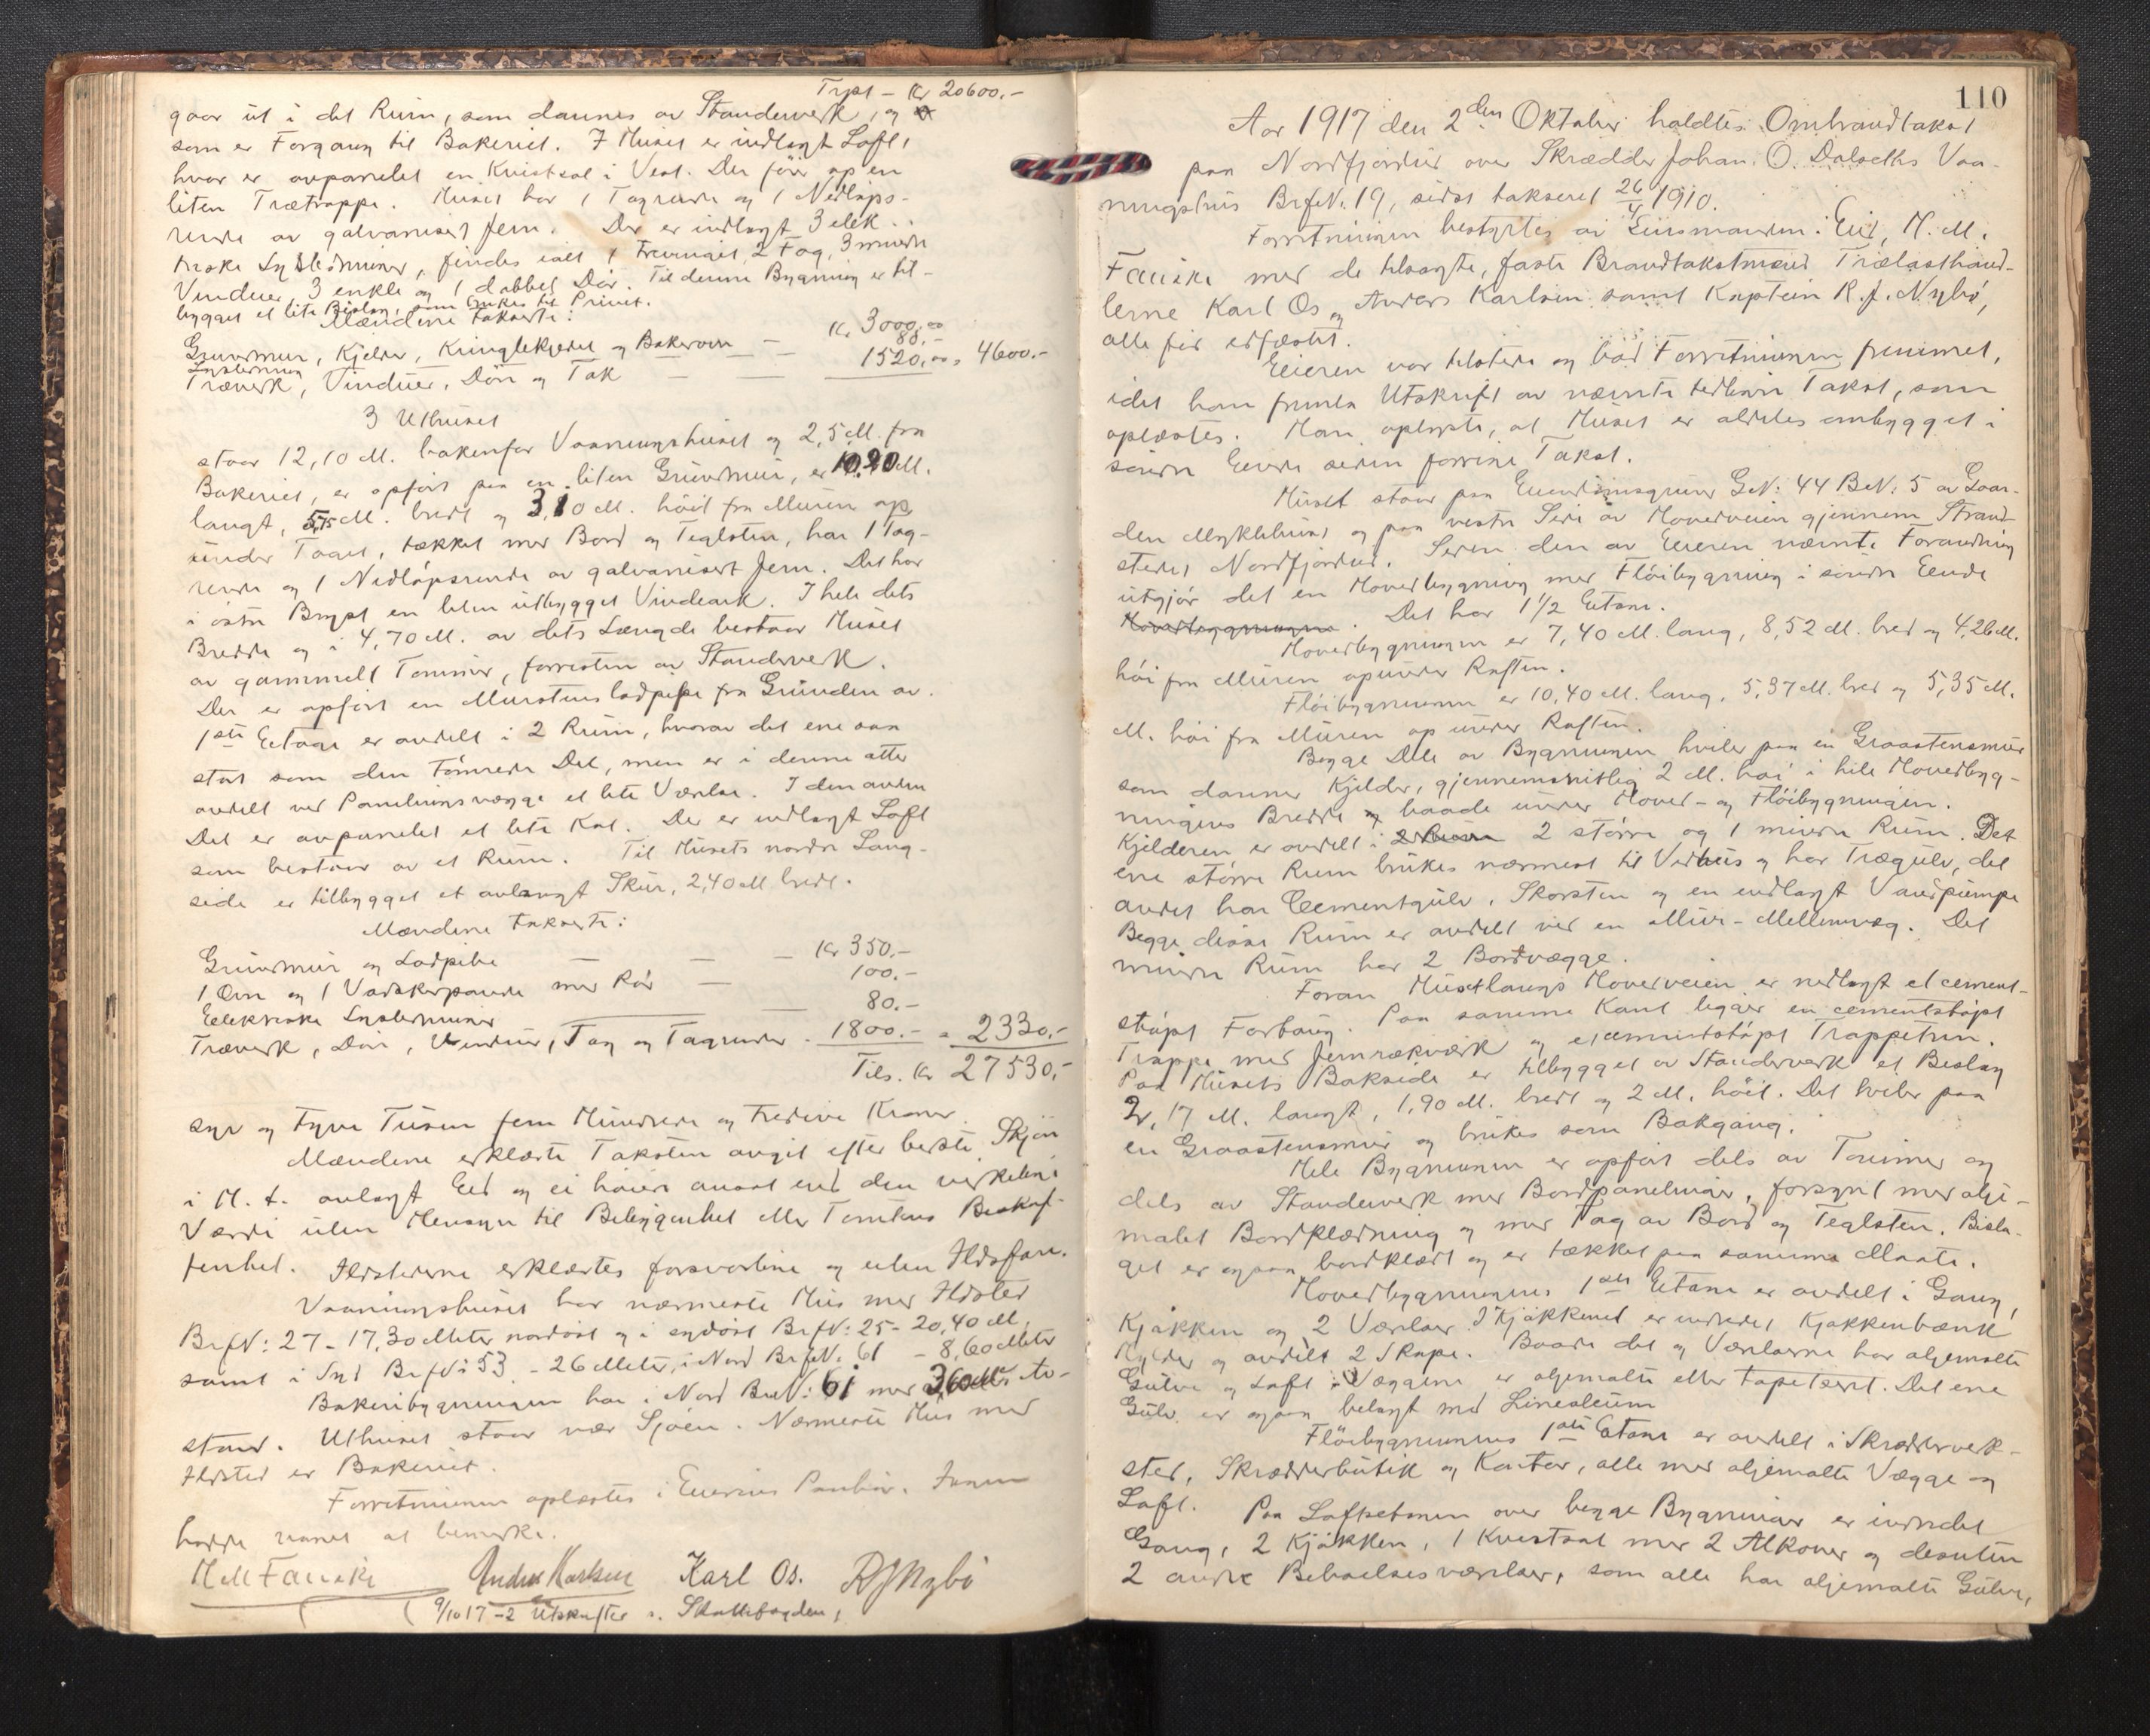 Trpt – Kr 20600.-
gaar ut i det Rum, som dannes av Standerverk, og
som er Forgang til Bakeriet. I Huset er indlagt Loft,
hvor er avpanelet en Kvistsal i Vest. Der fører op en
liten Trætrappe. Huset har 1 Tagrende og 1 Nedløps-
rende av galvanisert Jern. Der er indlagt 3 elek-
triske Ledninger, findes ialt 1 2 Fag, 3 mindre
Vinduer, 3 enkle og 1 dobbel Dør. Til denne Bygning er til-
bygget et lite Bislag, som brukes til Privet.
Mændene takserte:
Grundmur, Kjelder, Kringlekjedel og Bakerovn – Kr. 3000,00
80.-
Træverk, Vinduer, Dør og Tak – – 1520,00 = 4600.-
3 Uthuset
staar 12,10 M. bakenfor Vaaningshuset og 2,5 M. fra
Bakeriet, er opført paa en liten Grundmur, er 10,20 M.
langt, 5,75 M. bredt og 3,10 M. höit fra Muren op
under Taget, tækket med Bord og Teglsten, har 1 Tag-
rende og 1 Nedløpsrende av galvanisert Jern. Det har
i østre Bryst en liten utbygget Vindeark. I hele dets
Bredde og i 4,70 M. av dets Længde bestaar Huset
av gammelt Tømmer, forresten av Standerverk.
Der er opført en Murstens ladpipe fra Grunden av.
1ste Etage er avdelt i 2 Rum, hvorav det ene saa
stort som den Tømrede Del, men er i denne atter
avdelt ved Panelingsvægge et lite Værelse. I den anden
Del er avpanelet et lite Kot. Der er indlagt Loft
som bestaar av et Rum. Til Husets nordre Lang-
side er tilbygget et avlangt Skur, 2,40 M bredt.
Mændene takserte:
Grundmur og Ladpibe – – – Kr 350.-
1 Ovn og 1 Vadskerpande med Rør – 100.-
Elektriske Ledninger 80.-
Træverk, Dør, Vinduer, Tag og Tagrender - 1800.- = 2330.-
Tils. Kr 27530,-
syv og Tyve Tusen fem Hundrede og Tredive Kroner.
Mændene erklærte Taksten avgit efter bedste Skjøn
i H. t. avlagt Eed og ei höiere ansat end den virkelige
Værdi uten Hensyn til Beliggenhet eller Tomtens Beskaf-
fenhet. Ildstederne erklærtes forsvarlige og uten Ildsfare.
Vaaningshuset har nærmeste Hus med Ildsted
BrfN: 27 - 17,30 Meter nordøst og i sydøst BrfN: 25 - 20,40 M,
samt i Syd BrfN: 53 - 26 Meter, i Nord BrfN. 61 - 8,60 Meter
Bakeribygningen har i Nord BrN: 61 med 3,60 M's Av-
stand. Uthuset staar nær Sjøen. Nærmeste Hus med
Ildsted er Bakeriet.
Forretningen oplæstes i Eierens Paahør. Ingen
hadde noget at bemerke.
M M Fauske Anders Karlsen Karl Os. R J Nybö
(9/10 17 – 2 Utskrifter s. Skattefogden,
110
Aar 1917 den 2den Oktober holdtes Ombrandtakst
paa Nordfjordeid over Skrædder Johan. O. Dalseths Vaa-
ningshus BrfN. 19, sidst takseret 26/4 1910.
Forretningen bestyrtes av Lensmanden i Eid, M. M.
Fauske med de tilsagte, faste Brandtakstmænd Trælasthand-
lerne Karl Os og Anders Karlsen samt Kaptein R. J. Nybö,
alle før edfæstet.
Eieren var tilstede og bad Forretningen fremmet,
idet han fremla Utskrift av nævnte tidligere Takst, som
oplæstes. Han oplyste, at Huset er aldeles ombygget i
söndre Ende siden forrige Takst.
Huset staar paa Eiendomsgrund GN: 44 BN: 5 av Gaar-
den Myklebust og paa vestre Side av Hovedveien gjennem Strand-
stedet Nordfjordeid. Siden den av Eieren nævnte Forandring
utgjør det en Hovedbygning med Fløibygning i söndre Ende
Hovedbygningens. Det har 1 1/2 Etage.
Hovedbygningen er 7,40 M. lang, 8,52 M. bred og 4,26 M.
höi fra Muren opunder Raften.
Fløibygningen er 10,40 M. lang, 5,37 M. bred og 5,35 M.
M. höi fra Muren op under Raften.
Begge Dele av Bygningen hviler paa en Graastensmur
som danner Kjelder, gjennemsnitlig 2 M. høi i hele Hovedbyg-
ningens Bredde og baade under Hoved- og Fløibygningen.
Kjelderen er avdelt i 2 Rum 2 større og 1 mindre Rum. Det
ene större Rum brukes nærmest til Vedhus og har Trægulv, det
andet har Cementgulv, Skorsten og en indlagt Vandpumpe
Begge disse Rum er avdelt ved en Mur-Mellemvæg. Det
mindre Rum har 2 Bordvægge.
Foran Huset langs Hovedveien er nedlagt et cement-
støpt Fortaug. Paa samme Kant ligger en cementstøpt
Trappe med Jernrækværk og et cementstøpt Trappetrin.
Paa Husets Bakside er tilbygget av Standerværk et Beslag
2,17 M. langt, 1,90 M. bredt og 2 M. höit. Det hviler paa
en Graastensmur og brukes som Bakgang.
Hele Bygningen er opført dels av Tømmer og
dels av Standerverk med Bordpanelinger, forsynt med olje-
malet Bordklædning og med Tag av Bord og Teglsten. Bisla-
get er ogsaa bordklædt og er tækket paa samme Maate.
Hovedbygningens 1ste Etage er avdelt i Gang,
Kjøkken og 2 Værelser. I Kjøkkenet er indredet Kjøkkenbænk
Hylder og avdelt 2 Skape. Baade det og Værelserne har oljemalte
Gulve og Loft. Væggene er oljemalte eller tapetsert. Det ene
Gulv er ogsaa belagt med Linoleum
Fløibygningens 1ste Etage er avdelt i Skrædderverk-
sted, Skrædderbutik og Kontor, alle med oljemalte Vægge og
Loft. Paa Loftsetagen over begge Bygninger er indredet
Gang, 2 Kjøkken, 1 Kvistsal med 2 Alkover og desuten
2 andre Beboelsesværelser, som alle har oljemalte Gulve,